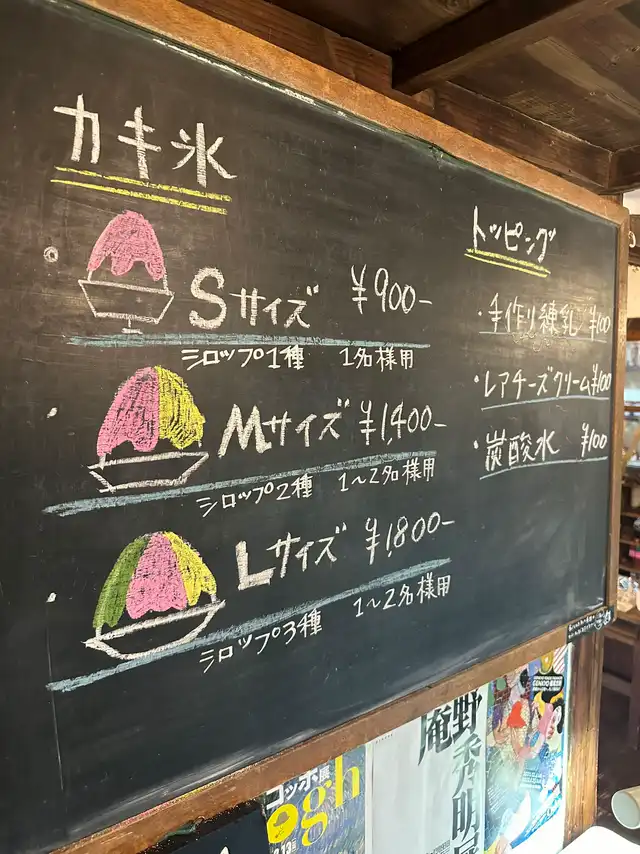 カキ氷
Sサイズ ¥900-
シロップ1種 1名様用
Mサイズ ¥1,400-
シロップ2種 1～2名様用
Lサイズ ¥1,800-
シロップ3種 1～2名様用
トッピング
・手作り練乳 ¥100
・レアチーズクリーム¥100
・炭酸水 ¥100
ゴッホ展
ogh
野秀明展
庵